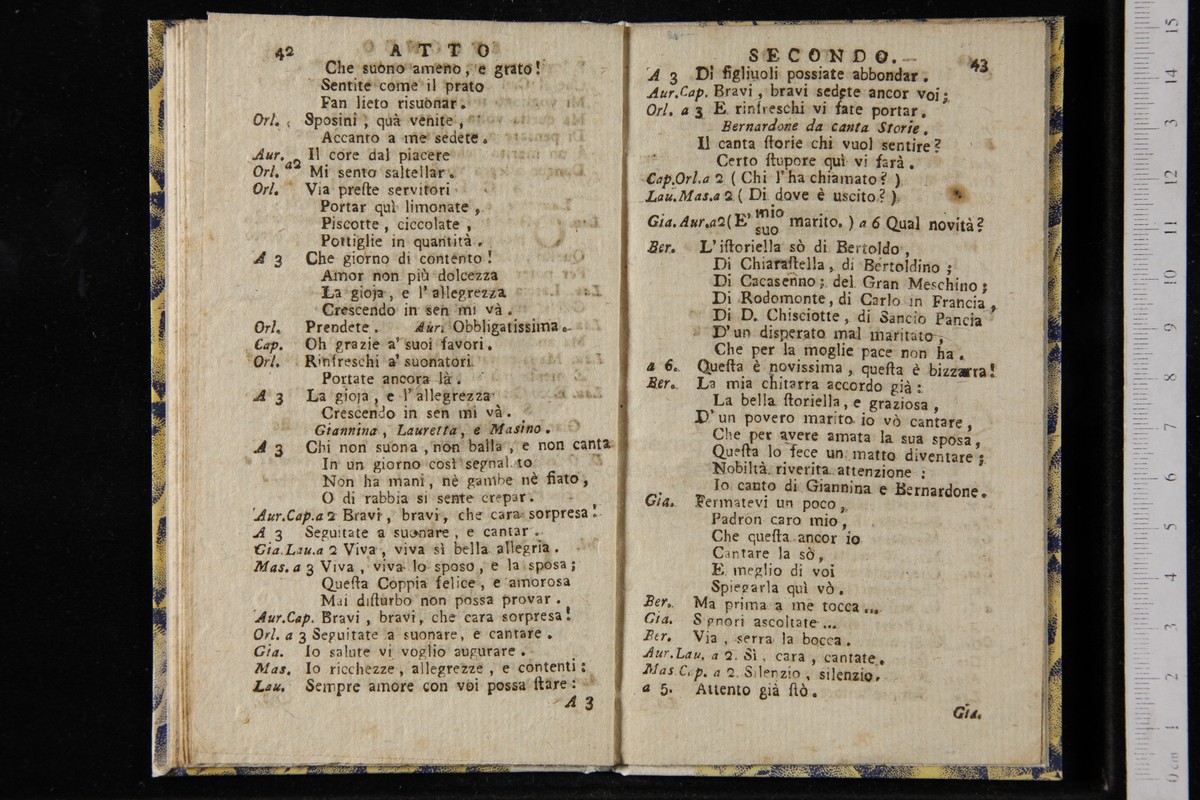 42 ATTO
Che suono ameno, e grato!
Sentite come il prato
Fan lieto risuonar.
Orl. Sposini, quà venite,
Accanto a me sedete.
Aur. Il core dal piacere
Orl. a2 Mi sento saltellar.
Orl. Via preſte servitori
Portar quì limonate,
Piscotte, ciccolate,
Pottiglie in quantità.
A 3 Che giorno di contento!
Amor non più dolcezza
La gioja, e l'allegrezza
Crescendo in sen mi và.
Orl. Prendete. Aur. Obbligatissima.
Cap. Oh grazie a' suoi favori.
Orl. Rinfreschi a' suonatori
Portate ancora là.
A 3 La gioja, e l'allegrezza
Crescendo in sen mi và.
Giannina, Lauretta, e Masino.
A 3 Chi non suona, non balla, e non canta
In un giorno così segnalato
Non ha mani, nè gambe nè fiato,
O di rabbia si sente crepar.
Aur.Cap.a 2 Bravi, bravi, che cara sorpresa!
A 3 Seguitate a suonare, e cantar.
Gia.Lau.a 2 Viva, viva sì bella allegria.
Mas. a 3 Viva, viva lo sposo, e la sposa;
Queſta Coppia felice, e amorosa
Mai diſturbo non possa provar.
Aur.Cap. Bravi, bravi, che cara sorpresa!
Orl. a 3 Seguitate a suonare, e cantare.
Gia. Io salute vi voglio augurare.
Mas. Io ricchezze, allegrezze, e contenti:
Lau. Sempre amore con voi possa ſtare:
A 3
SECONDO. 43
A 3 Di figliuoli possiate abbondar.
Aur.Cap. Bravi, bravi sedete ancor voi;
Orl. a 3 E rinfreschi vi fate portar.
Bernardone da canta Storie.
Il canta ſtorie chi vuol sentire?
Certo ſtupore quì vi farà.
Cap.Orl.a 2 (Chi l'ha chiamato?)
Lau.Mas.a 2 (Di dove è uscito?)
Gia.Aur.a2(E' mio suo marito.) a 6 Qual novità?
Ber. L'iſtoriella sò di Bertoldo,
Di Chiaraſtella, di Bertoldino;
Di Cacasenno; del Gran Meschino;
Di Rodomonte, di Carlo in Francia,
Di D. Chisciotte, di Sancio Pancia
D'un disperato mal maritato,
Che per la moglie pace non ha.
a 6. Queſta è novissima, queſta è bizzarra!
Ber. La mia chitarra accordo già:
La bella ſtoriella, e graziosa,
D'un povero marito io vò cantare,
Che per avere amata la sua sposa,
Queſta lo fece un matto diventare;
Nobiltà riverita attenzione:
Io canto di Giannina e Bernardone.
Gia. Fermatevi un poco,
Padron caro mio,
Che queſta ancor io
Cantare la sò,
E meglio di voi
Spiegarla quì vò.
Ber. Ma prima a me tocca...
Gia. Signori ascoltate...
Ber. Via, serra la bocca.
Aur.Lau. a 2. Sì, cara, cantate.
Mas.Cap. a 2. Silenzio, silenzio.
a 5. Attento già ſtò.
Gia.